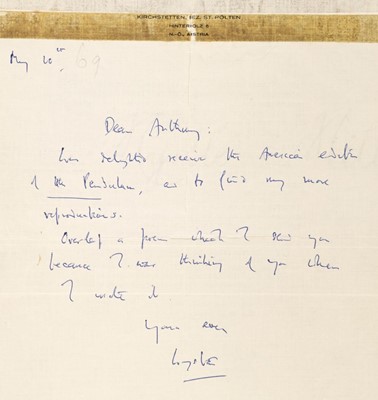 KIRCHSTETTEN, BEZ. ST. PÖLTEN
HINTERHOLZ 6
N.-Ö., AUSTRIA
May 10th, 69
Dear Anthony:
Was delighted receive the American edition
of the Pendulum, as to find my more
reproductions.
Overleaf a poem which I send you
because I was thinking of you when
I wrote it
Yours ever
Wystan